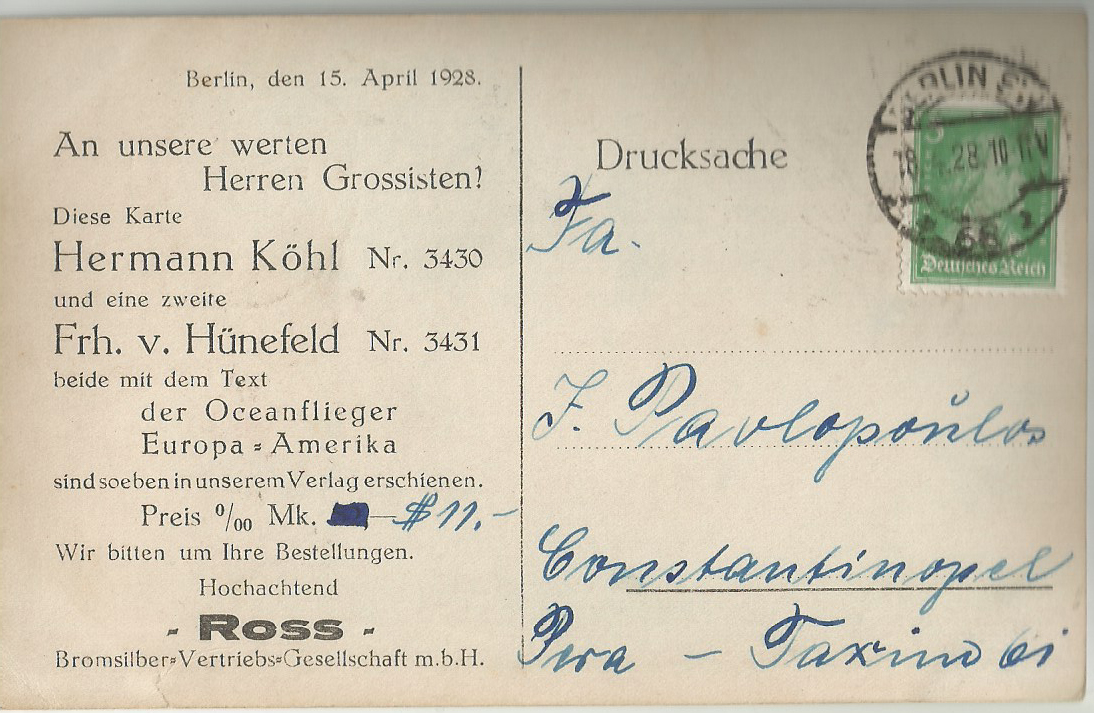 Berlin, den 15. April 1928.
An unsere werten
Herren Grossisten!
Diese Karte
Hermann Köhl Nr. 3430
und eine zweite
Frh. v. Hünefeld Nr. 3431
beide mit dem Text
der Oceanflieger
Europa=Amerika
sind soeben in unserem Verlag erschienen.
Preis ⁰/₀₀ Mk. —$11.-
Wir bitten um Ihre Bestellungen.
Hochachtend
- Ross -
Bromsilber=Vertriebs=Gesellschaft m.b.H.
Drucksache
BERLIN SW
28.10
68
Deutsches Reich
Fa.
J. Pavlopoŭlos
Constantinopel
Pera —